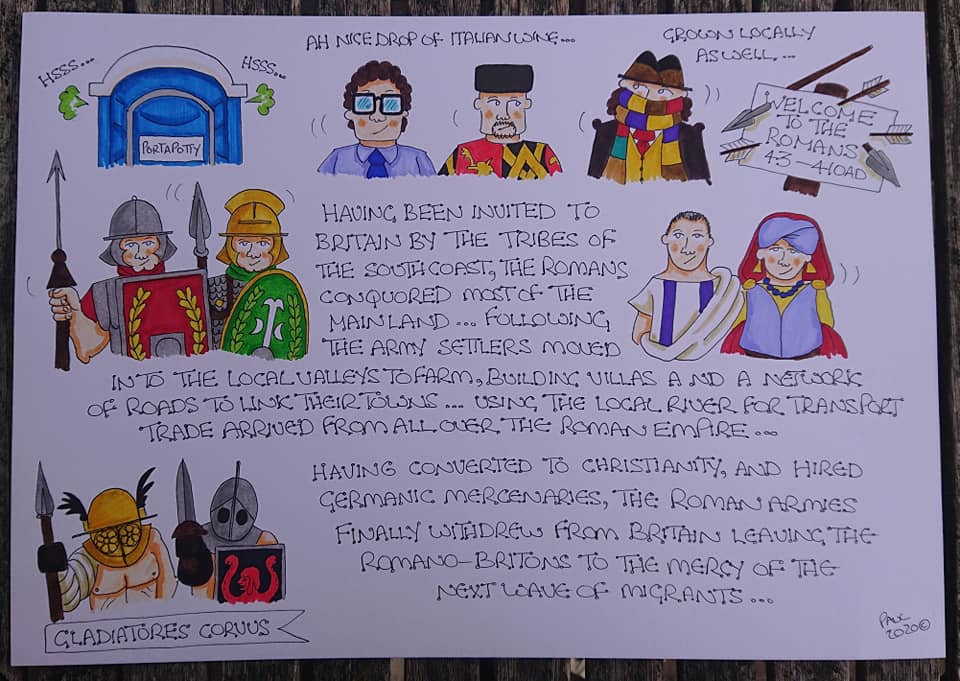 HSSS...
HSSS...
PORTAPOTTY
AH NICE DROP OF ITALIAN WINE...
GROWN LOCALLY
AS WELL...
WELCOME
TO THE
ROMANS
43-410AD
HAVING BEEN INVITED TO
BRITAIN BY THE TRIBES OF
THE SOUTH COAST, THE ROMANS
CONQUORED MOST OF THE
MAINLAND... FOLLOWING
THE ARMY SETTLERS MOVED
INTO THE LOCAL VALLEYS TO FARM, BUILDING VILLAS AND A NETWORK
OF ROADS TO LINK THEIR TOWNS... USING THE LOCAL RIVER FOR TRANSPORT
TRADE ARRIVED FROM ALL OVER THE ROMAN EMPIRE...
HAVING CONVERTED TO CHRISTIANITY, AND HIRED
GERMANIC MERCENARIES, THE ROMAN ARMIES
FINALLY WITHDREW FROM BRITAIN LEAVING THE
ROMANO-BRITONS TO THE MERCY OF THE
NEXT WAVE OF MIGRANTS...
GLADIATORES CORVUS
PAUL
2020©